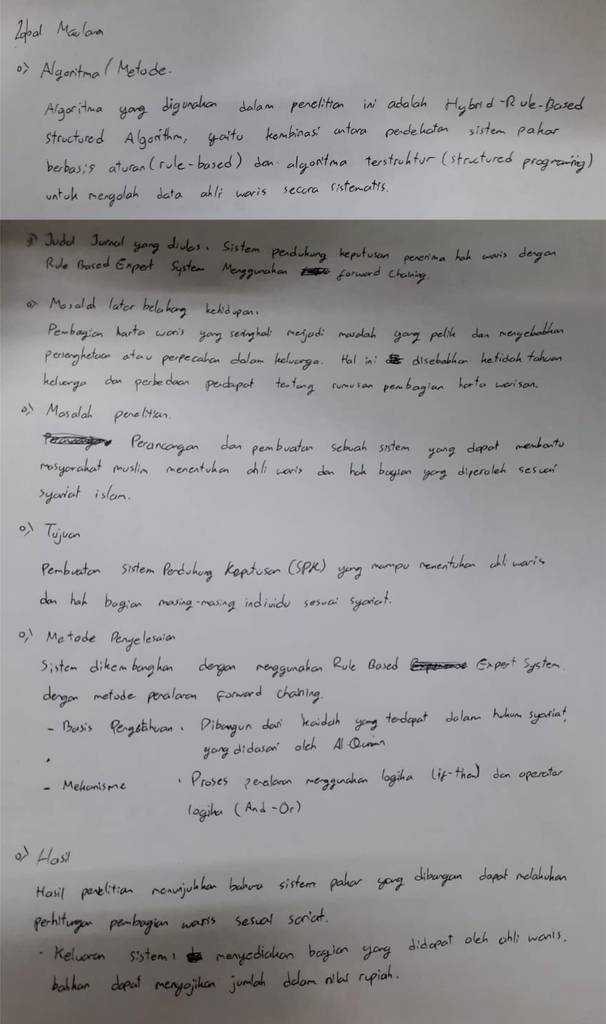 Iqbal Maulana
o) Algoritma / Metode.
Algoritma yang digunakan dalam penelitian ini adalah Hybrid-Rule-Based
Structured Algorithm, yaitu kombinasi antara pendekatan sistem pakar
berbasis aturan (rule-based) dan algoritma terstruktur (structured programing)
untuk mengolah data ahli waris secara sistematis.
o) Judul Jurnal yang diulas. Sistem pendukung keputusan penerima hak waris dengan
Rule Based Expert System Menggunakan forward Chaining.
o) Masalah latar belakang kehidupan.
Pembagian harta waris yang seringkali menjadi masalah yang pelik dan menyebabkan
persengketaan atau perpecahan dalam keluarga. Hal ini disebabkan ketidak tahuan
keluarga dan perbedaan pendapat tentang rumusan pembagian harta warisan.
o) Masalah penelitian.
Perancangan dan pembuatan sebuah sistem yang dapat membantu
masyarakat muslim menentukan ahli waris dan hak bagian yang diperoleh sesuai
syariat islam.
o) Tujuan
Pembuatan Sistem Pendukung Keputusan (SPK) yang mampu menentukan ahli waris
dan hak bagian masing-masing individu sesuai syariat.
o) Metode Penyelesaian
Sistem dikembangkan dengan menggunakan Rule Based Expert System
dengan metode penalaran forward chaining.
- Basis Pengetahuan. Dibangun dari kaidah yang terdapat dalam hukum syariat,
yang didasari oleh Al Quran
- Mekanisme . Proses penalaran menggunakan logika (if-then) dan operator
logika (And-Or)
o) Hasil
Hasil penelitian menunjukkan bahwa sistem pakar yang dibangun dapat melakukan
perhitungan pembagian waris sesuai sariat.
- Keluaran sistem: menyediakan bagian yang didapat oleh ahli waris.
bahkan dapat menyajikan jumlah dalam nilai rupiah.